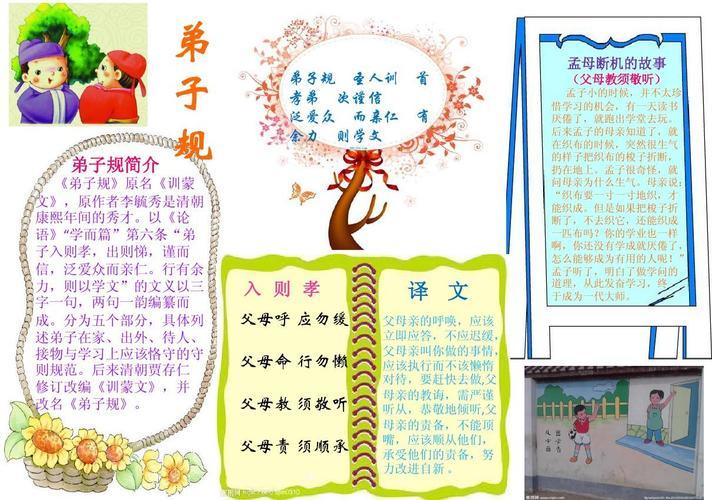 弟子规
弟子规 圣人训 首
孝弟 次谨信
泛爱众 而亲仁 有
余力 则学文
孟母断机的故事
（父母教须敬听）
孟子小的时候，并不太珍
惜学习的机会，有一天读书
厌倦了，就跑出学堂去玩。
后来孟子的母亲知道了，就
在织布的时候，突然很生气
的样子把织布的梭子折断，
扔在地上。孟子很奇怪，就
问母亲为什么生气。母亲说：
“织布要一寸一寸地织，才
能织成。但是如果把梭子折
断了，不去织它，还能织成
一匹布吗？你的学业也一样
啊，你还没有学成就厌倦了，
怎么能够成为有用的人呢！”
孟子听了，明白了做学问的
道理，从此发奋学习，终
于成为一代大师。
弟子规简介
《弟子规》原名《训蒙
文》，原作者李毓秀是清朝
康熙年间的秀才。以《论
语》“学而篇”第六条“弟
子入则孝，出则悌，谨而
信，泛爱众而亲仁。行有余
力，则以学文”的文义以三
字一句，两句一韵编纂而
成。分为五个部分，具体列
述弟子在家、出外、待人、
接物与学习上应该恪守的守
则规范。后来清朝贾存仁
修订改编《训蒙文》，并
改名《弟子规》。
入则孝
父母呼 应勿缓
父母命 行勿懒
父母教 须敬听
父母责 须顺承
译文
父母亲的呼唤，应该
立即应答，不应迟缓，
父母亲叫你做的事情，
应该执行而不该懒惰
对待，要赶快去做,父
母亲的教诲，需严谨
听从，恭敬地倾听,父
母亲的责备，不能顶
嘴，应该顺从他们，
承受他们的责备，努
力改进自新。